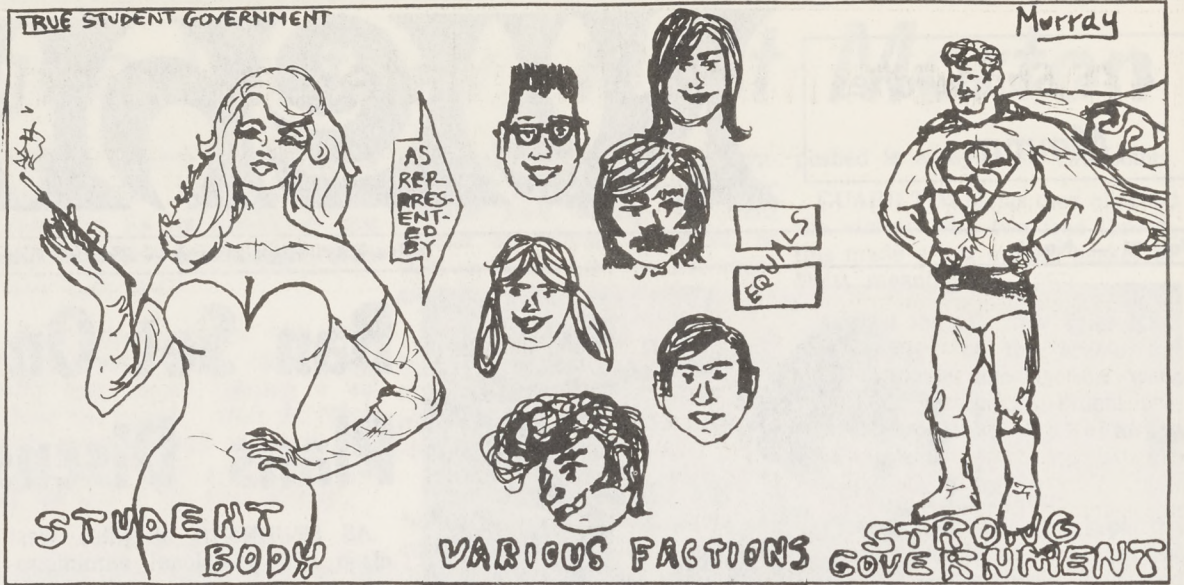 TRUE STUDENT GOVERNMENT
Murray
AS
REP-
RES-
ENT-
ED
BY
EQUALS
STUDENT
BODY
VARIOUS FACTIONS
STRONG
GOVERNMENT